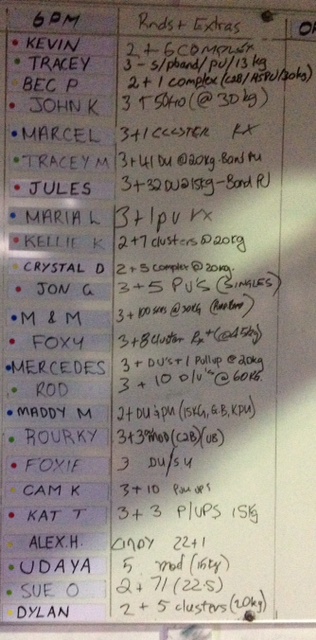 6PM Rnds + Extras
KEVIN 2 + 6 COMPLEX
TRACEY 3 - 5/pband/PU/13kg
BEC P 2 + 1 complex (C2B/ /20kg)
JOHN K 3 + 50 (@ 30kg)
MARCEL 3 + 1 CLUSTER RX
TRACEY M 3 + 41 DU @ 20kg - Band PU
JULES 3 + 32 DU @ 15kg - Band PU
MARIA L 3 + 1 pu rx
KELLIE K 2 + 7 clusters @ 20kg
CRYSTAL D 2 + 5 complex @ 20kg.
JON G 3 + 5 PU'S (SINGLES)
M & M 3 + 100 @ 30kg
FOXY 3 + 8 cluster Rx + (@45kg)
MERCEDES 3 + DU's + 1 Pullup @ 20kg
ROD 3 + 10 D/U's @ 60KG.
MADDY M 2 + DU PU (15KG, G.B, KPU)
BOURKY 3 + 3 mod (C2B) (UB)
FOXIE 3 DU/SU
CAM K 3 + 10 Pull ups
KAT T 3 + 3 P/UPS 15Kg
ALEX.H. CINDY 22 + 1
UDAYA 5 mod (15kg)
SUE O 2 + 71 (22.5)
DYLAN 2 + 5 clusters (20kg)